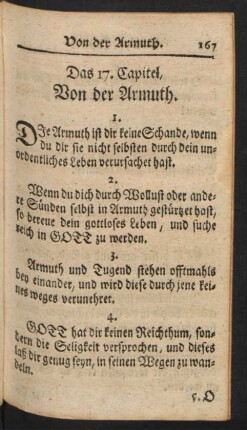 Von der Armuth. 167
Das 17. Capitel,
Von der Armuth.
1.
DJe Armuth ist dir keine Schande, wenn
du dir sie nicht selbsten durch dein un-
ordentliches Leben verursachet hast.
2.
Wenn du dich durch Wollust oder ande-
re Sünden selbst in Armuth gestürtzet hast,
so bereue dein gottloses Leben, und suche
reich in GOTT zu werden.
3.
Armuth und Tugend stehen offtmahls
bey einander, und wird diese durch jene kei-
nes weges verunehret.
4.
GOTT hat dir keinen Reichthum, son-
dern die Seligkeit versprochen, und dieses
laß dir genug seyn, in seinen Wegen zu wan-
deln.
5. O